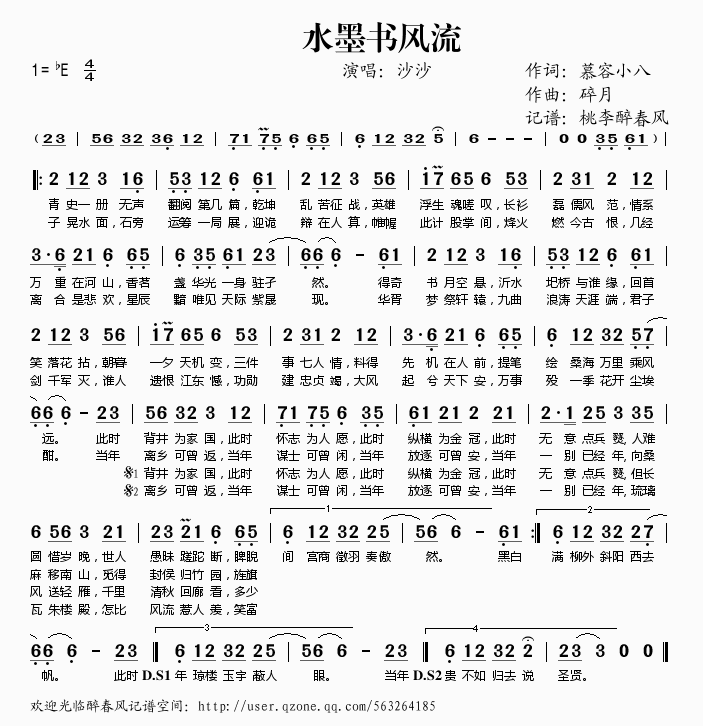 水墨书风流
1= ♭E 4/4
演唱：沙沙
作词：慕容小八
作曲：碎月
记谱：桃李醉春风
( 23 | 56 32 36 12 | 71 75 6 65 | 6 12 32 5 | 6 - - - | 0 0 35 61 )|
‖: 2 12 3 16 | 53 12 6 61 | 2 12 3 56 | i7 65 6 53 | 2 31 2 12 |
青 史一 册 无声 翻阅 第几 篇，乾坤 乱 苦征 战，英雄 浮生 魂嗟 叹，长衫 磊 儒风 范，情系
子 晃水 面，石旁 运筹 一局 展，迎诡 辩 在人 算，帷幄 此计 股掌 间，烽火 燃 今古 恨，几经
3·6 21 6 65 | 6 35 61 23 | 66 6 - 61 | 2 12 3 16 | 53 12 6 61 |
万 重 在河 山，香茗 盏 华光 一身 驻孑 然。 得奇 书 月空 悬，沂水 圯桥 与谁 缘，回首
离 合 是悲 欢，星辰 黯 唯见 天际 紫晟 现。 华胥 梦 祭轩 辕，九曲 浪涛 天涯 端，君子
2 12 3 56 | i7 65 6 53 | 2 31 2 12 | 3·6 21 6 65 | 6 12 32 57 |
笑 落花 拈，朝春 一夕 天机 变，三件 事 七人 情，料得 先 机 在人 前，提笔 绘 桑海 万里 乘风
剑 千军 灭，谁人 遗恨 江东 憾，功勋 建 忠贞 竭，大风 起 兮 天下 安，万事 殁 一季 花开 尘埃
66 6 - 23 | 56 32 3 12 | 71 75 6 35 | 61 21 2 21 | 2·1 23 3 35 |
远。 此时 背井 为家 国，此时 怀志 为人 愿，此时 纵横 为金 冠，此时 无 意 点兵 燹，人难
酣。 当年 离乡 可曾 返，当年 谋士 可曾 闲，当年 放逐 可曾 安，当年 一 别 已经 年，向桑
𝄋1 背井 为家 国，此时 怀志 为人 愿，此时 纵横 为金 冠，此时 无 意 点兵 燹，但长
𝄋2 离乡 可曾 返，当年 谋士 可曾 闲，当年 放逐 可曾 安，当年 一 别 已经 年，琉璃
6 56 3 21 | 23 21 6 65 | 6 12 32 25 | 56 6 - 61 :‖ 6 12 32 27 |
圆 惜岁 晚，世人 愚昧 蹉跎 断，睥睨 间 宫商 徵羽 奏傲 然。 黑白 满 柳外 斜阳 西去
麻 移南 山，觅得 封侯 归竹 园，旌旗
风 送轻 雁，千里 清秋 回廊 看，多少
瓦 朱楼 殿，怎比 风流 惹人 羡，笑富
66 6 - 23 ‖ 6 12 32 25 | 56 6 - 23 ‖ 6 12 32 2 | 23 3 0 0 ‖
帆。 此时 D.S1 年 琼楼 玉宇 蔽人 眼。 当年 D.S2 贵 不如 归去 说 圣贤。
欢迎光临醉春风记谱空间：http://user.qzone.qq.com/563264185